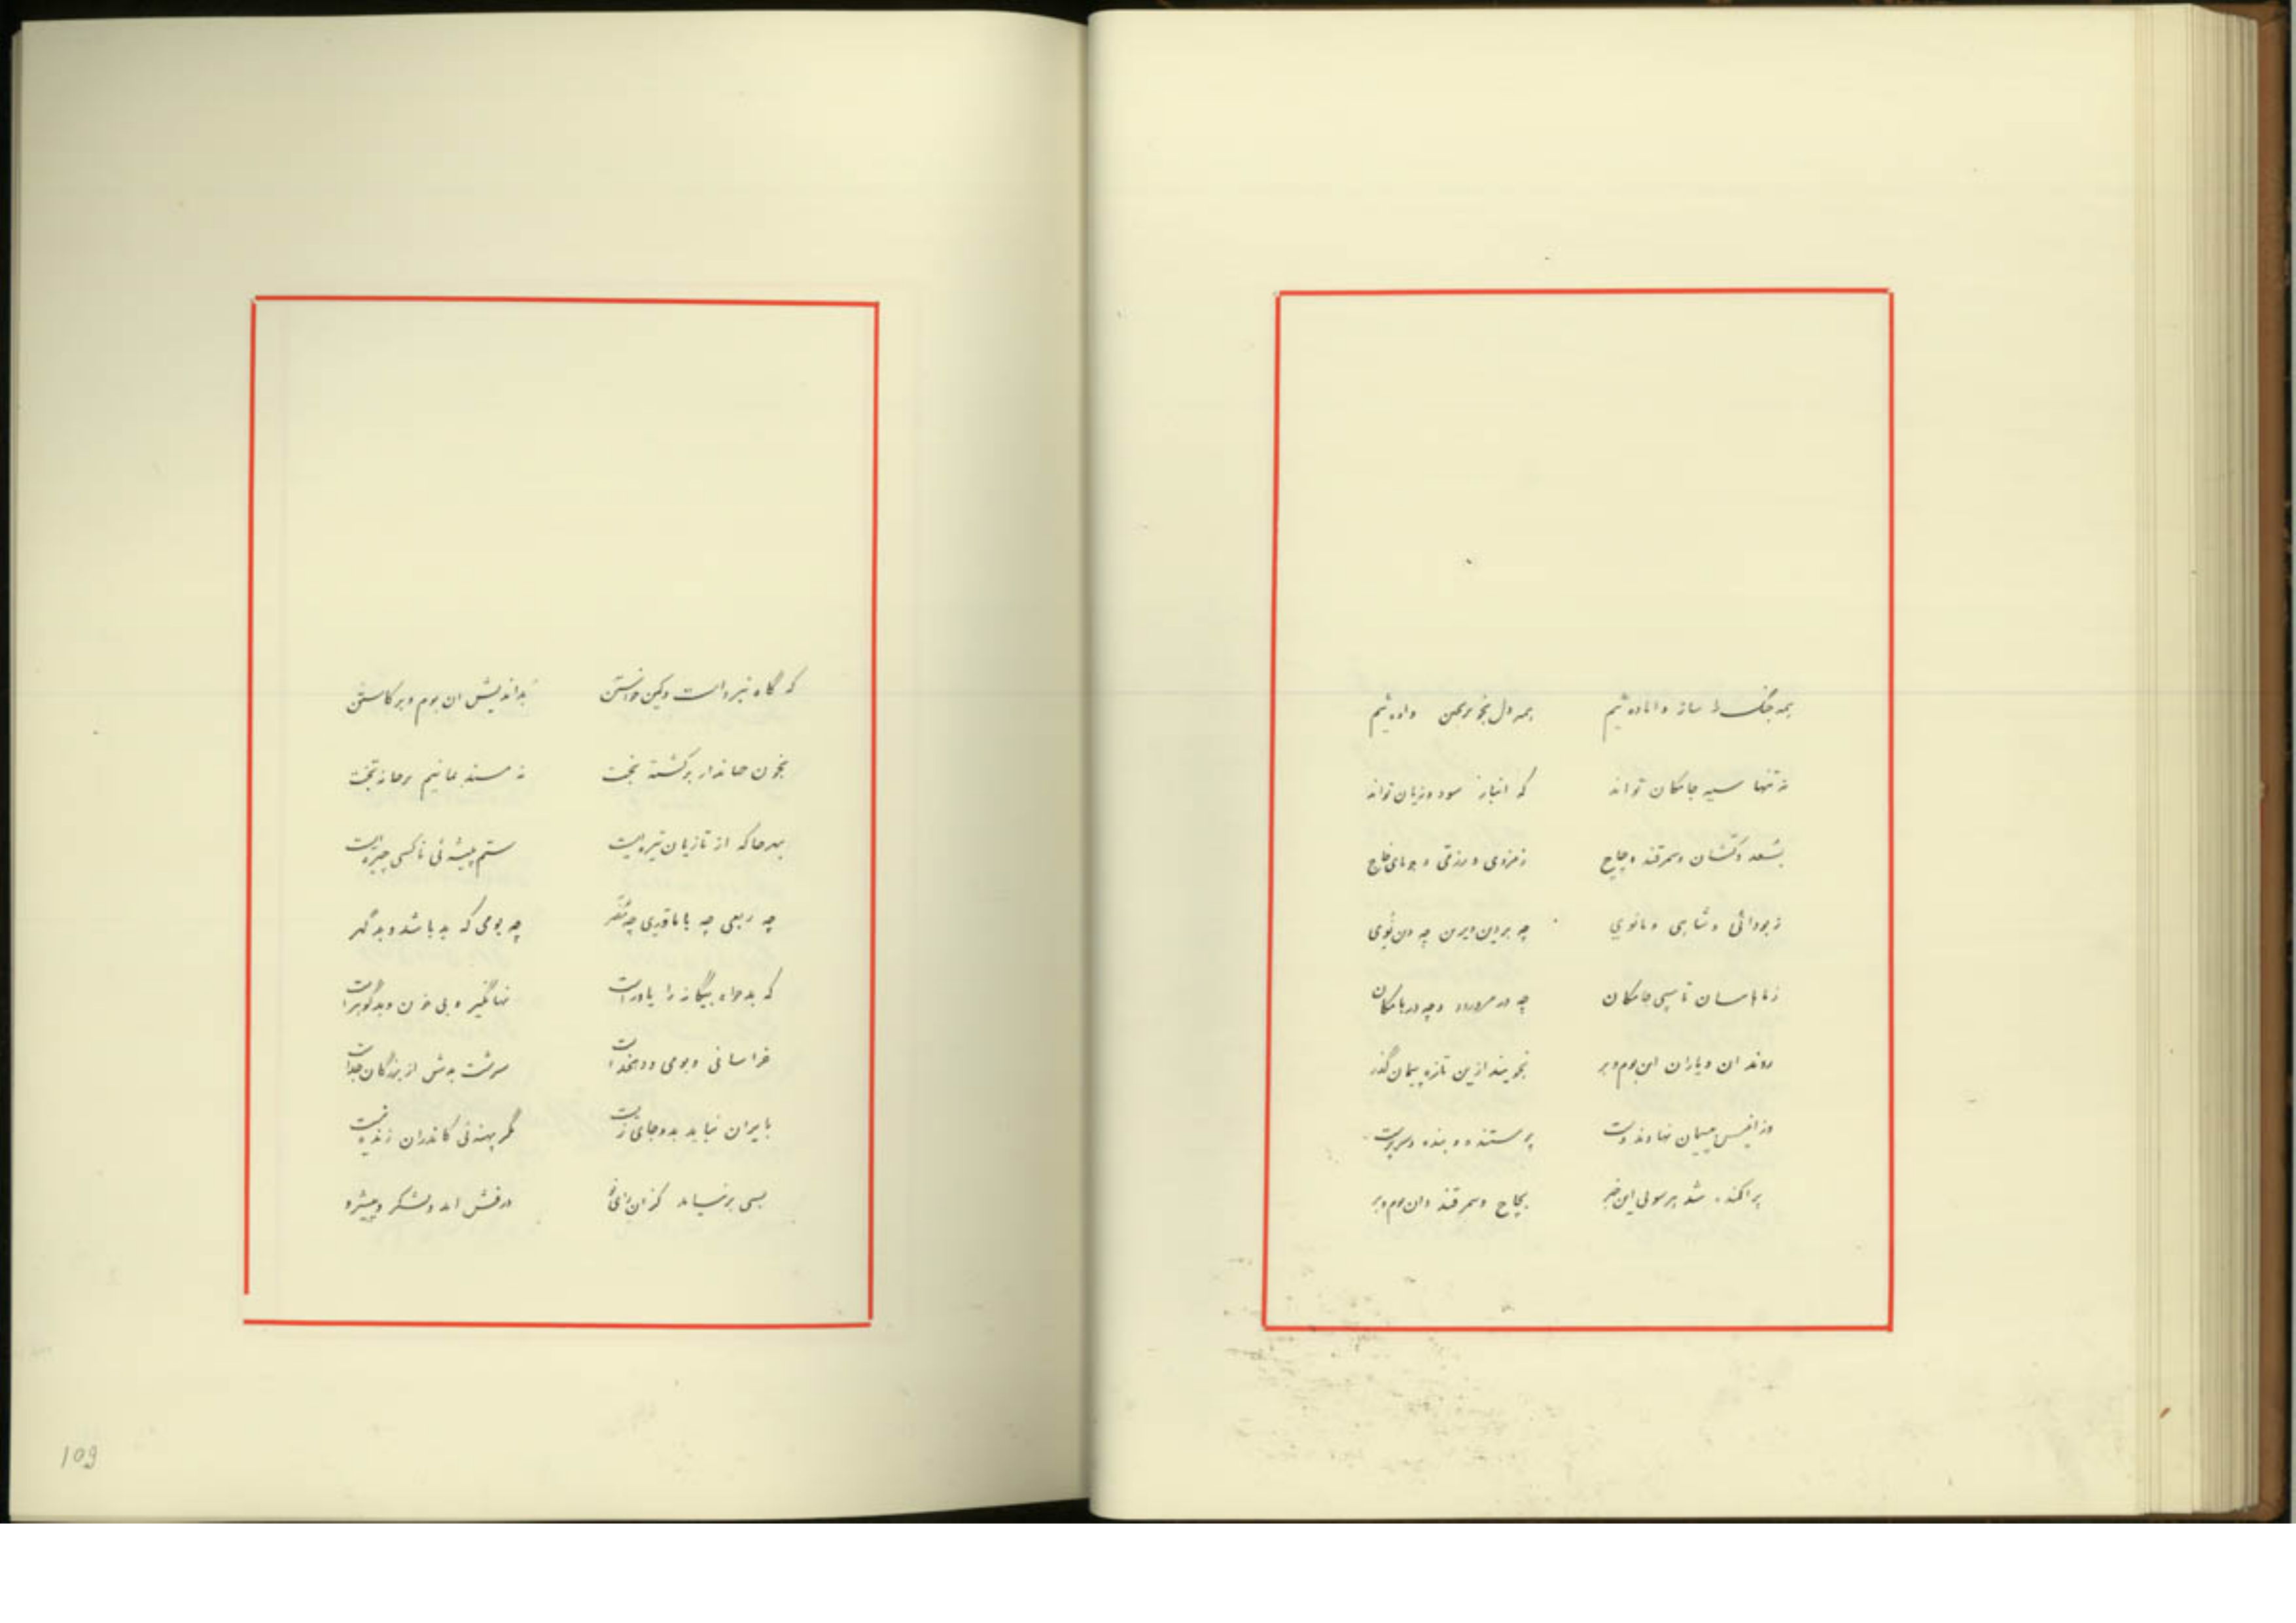 همه جنگ را ساز و اماده ایم همه دل بخونریختن داده ایم
نه تنها سیه جامگان تواند که انباز سود و زیان تواند
بسغد و کشان و سمرقند و چاچ ز مزدی و رزقی و جویای خاج
ز بودائی و شاهی و مانوی چه بر دین دیرین چه دین نوی
تا سپی جامگان چه در مرورود و چه در بامکان
روند ان و یاران این بوم و بر نجویند ازین تازه پیمان گذر
وزانپس پیمان نهادند دست پرستنده و بنده و سرپرست
پراکنده شد هر سوئی این خبر بچاچ و سمرقند و ان بوم و بر
که گاه نبرد است و کین خواستن بداندیش ان بوم و بر کاستن
بخون جهاندار برگشته بخت نه مسند بمانیم بر جا نه تخت
بهر جا که از تازیان تیره ایست ستم پیشه ئی ناکسی چیره ایست
چه ربعی چه باماقدری چه مضر چه بومی که بد باشد و بد گهر
که بدخواه بیگانه را یاور است نهانگیر و بی خون و بد گوهر است
خراسانی و بومی و دهخداست سرشت بدش از بزرگان جداست
بایران نباید بد و جای زیست مگر پهنه ئی کاندران زنده نیست
بسی برنیامد کزان رای نو درفش امد و لشکر و پیشرو
109